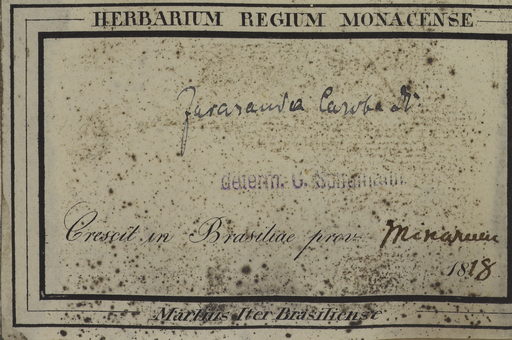 HERBARIUM REGIUM MONACENSE
Jacaranda Caroba
determ. C. Schumann
Crescit in Brasiliae prov. Minarum
1818
Martius Iter Brasiliense